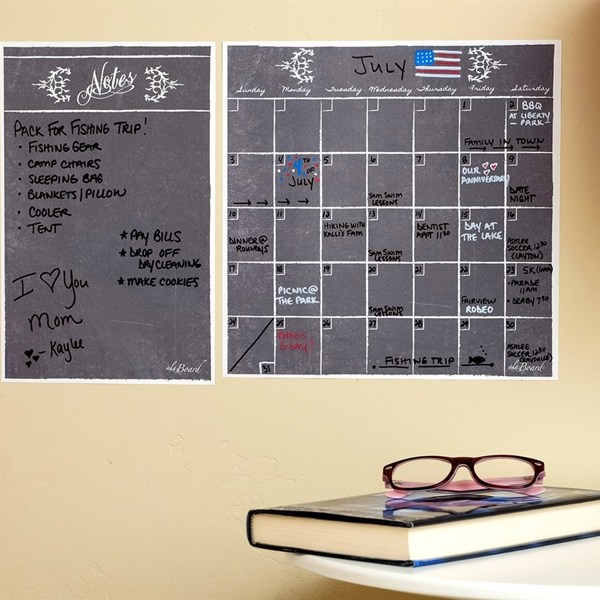 Notes
PACK FOR FISHING TRIP!
• FISHING GEAR
• CAMP CHAIRS
• SLEEPING BAG
• BLANKETS/PILLOW
• COOLER
• TENT
* PAY BILLS
* DROP OFF
DRYCLEANING
* MAKE COOKIES
I ♡ You
Mom
- Kaylee
JULY
Sunday Monday Tuesday Wednesday Thursday Friday Saturday
1
2 BBQ
AT LIBERTY
PARK
FAMILY IN TOWN
3
4 4TH
OF
JULY
5
6 SAM SWIM
LESSONS
7
8 OUR
ANNIVERSARY
9 DATE
NIGHT
10 DINNER@
11
12 HIKING WITH
KALLI'S FAM
13 SAM SWIM
LESSONS
14 DENTIST
APPT 1130
15 DAY AT
THE LAKE
16 ASHLEE
SOCCER 1230
(LAYTON)
17
18 PICNIC@
THE PARK
19
20 SAM SWIM
LESSONS
21
22 FAIRVIEW
RODEO
23 5K
• PARADE
11AM
• DERBY 730
24
31
25
26
27
28
29
FISHING TRIP
30 ASHLEE
SOCCER 1230